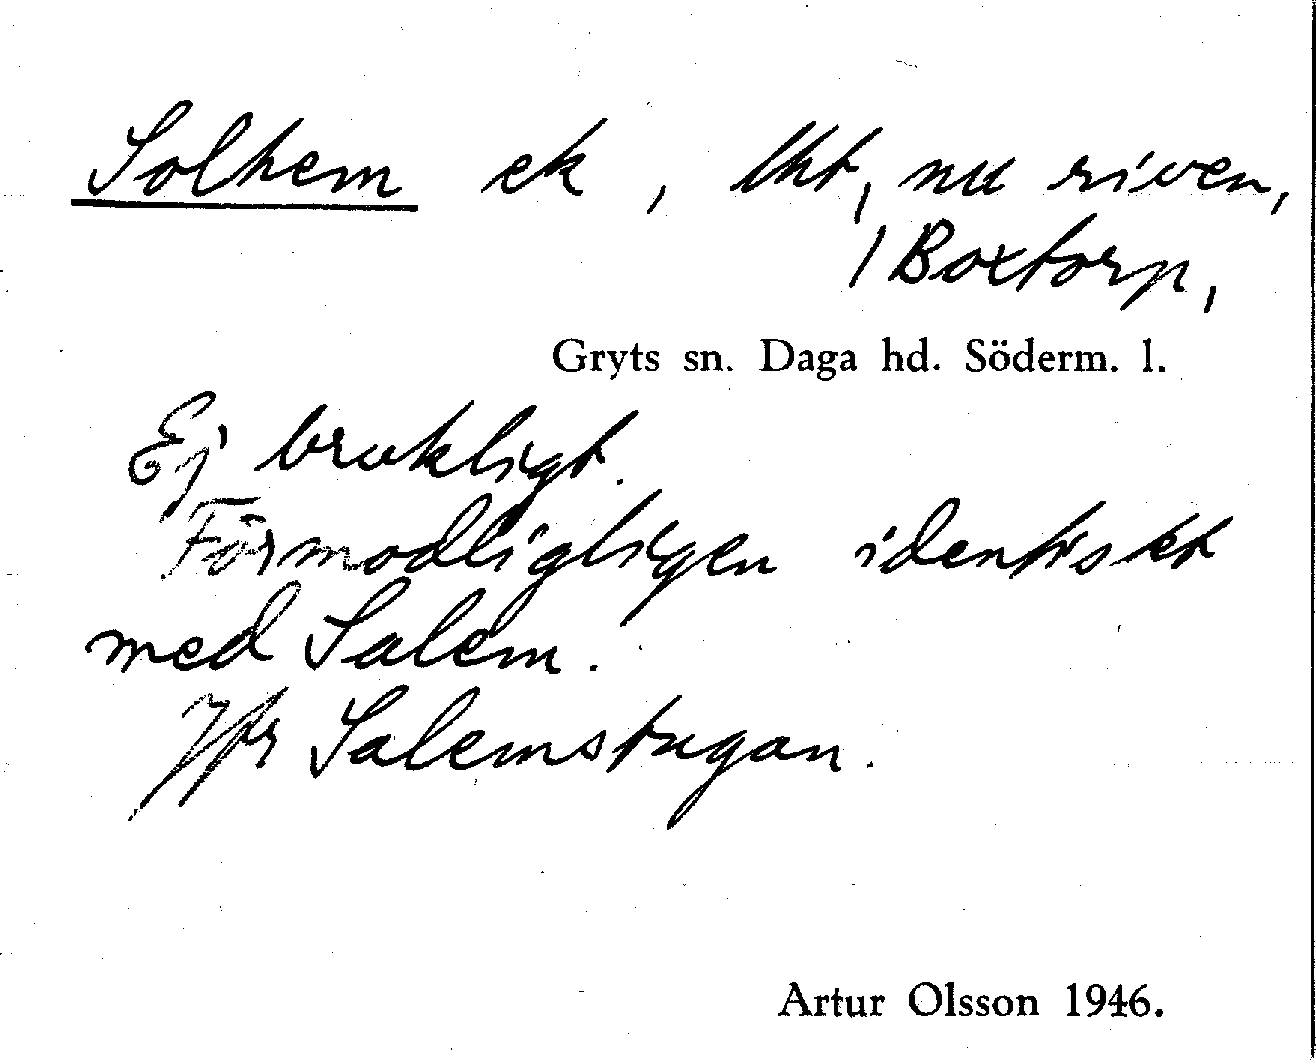 Solhem ek, lht, nu riven,
/ Boxtorp,
Gryts sn. Daga hd. Söderm. l.
Ej brukligt.
Förmodligligen identiskt
med Salem.
Jfr Salemstugan.
Artur Olsson 1946.